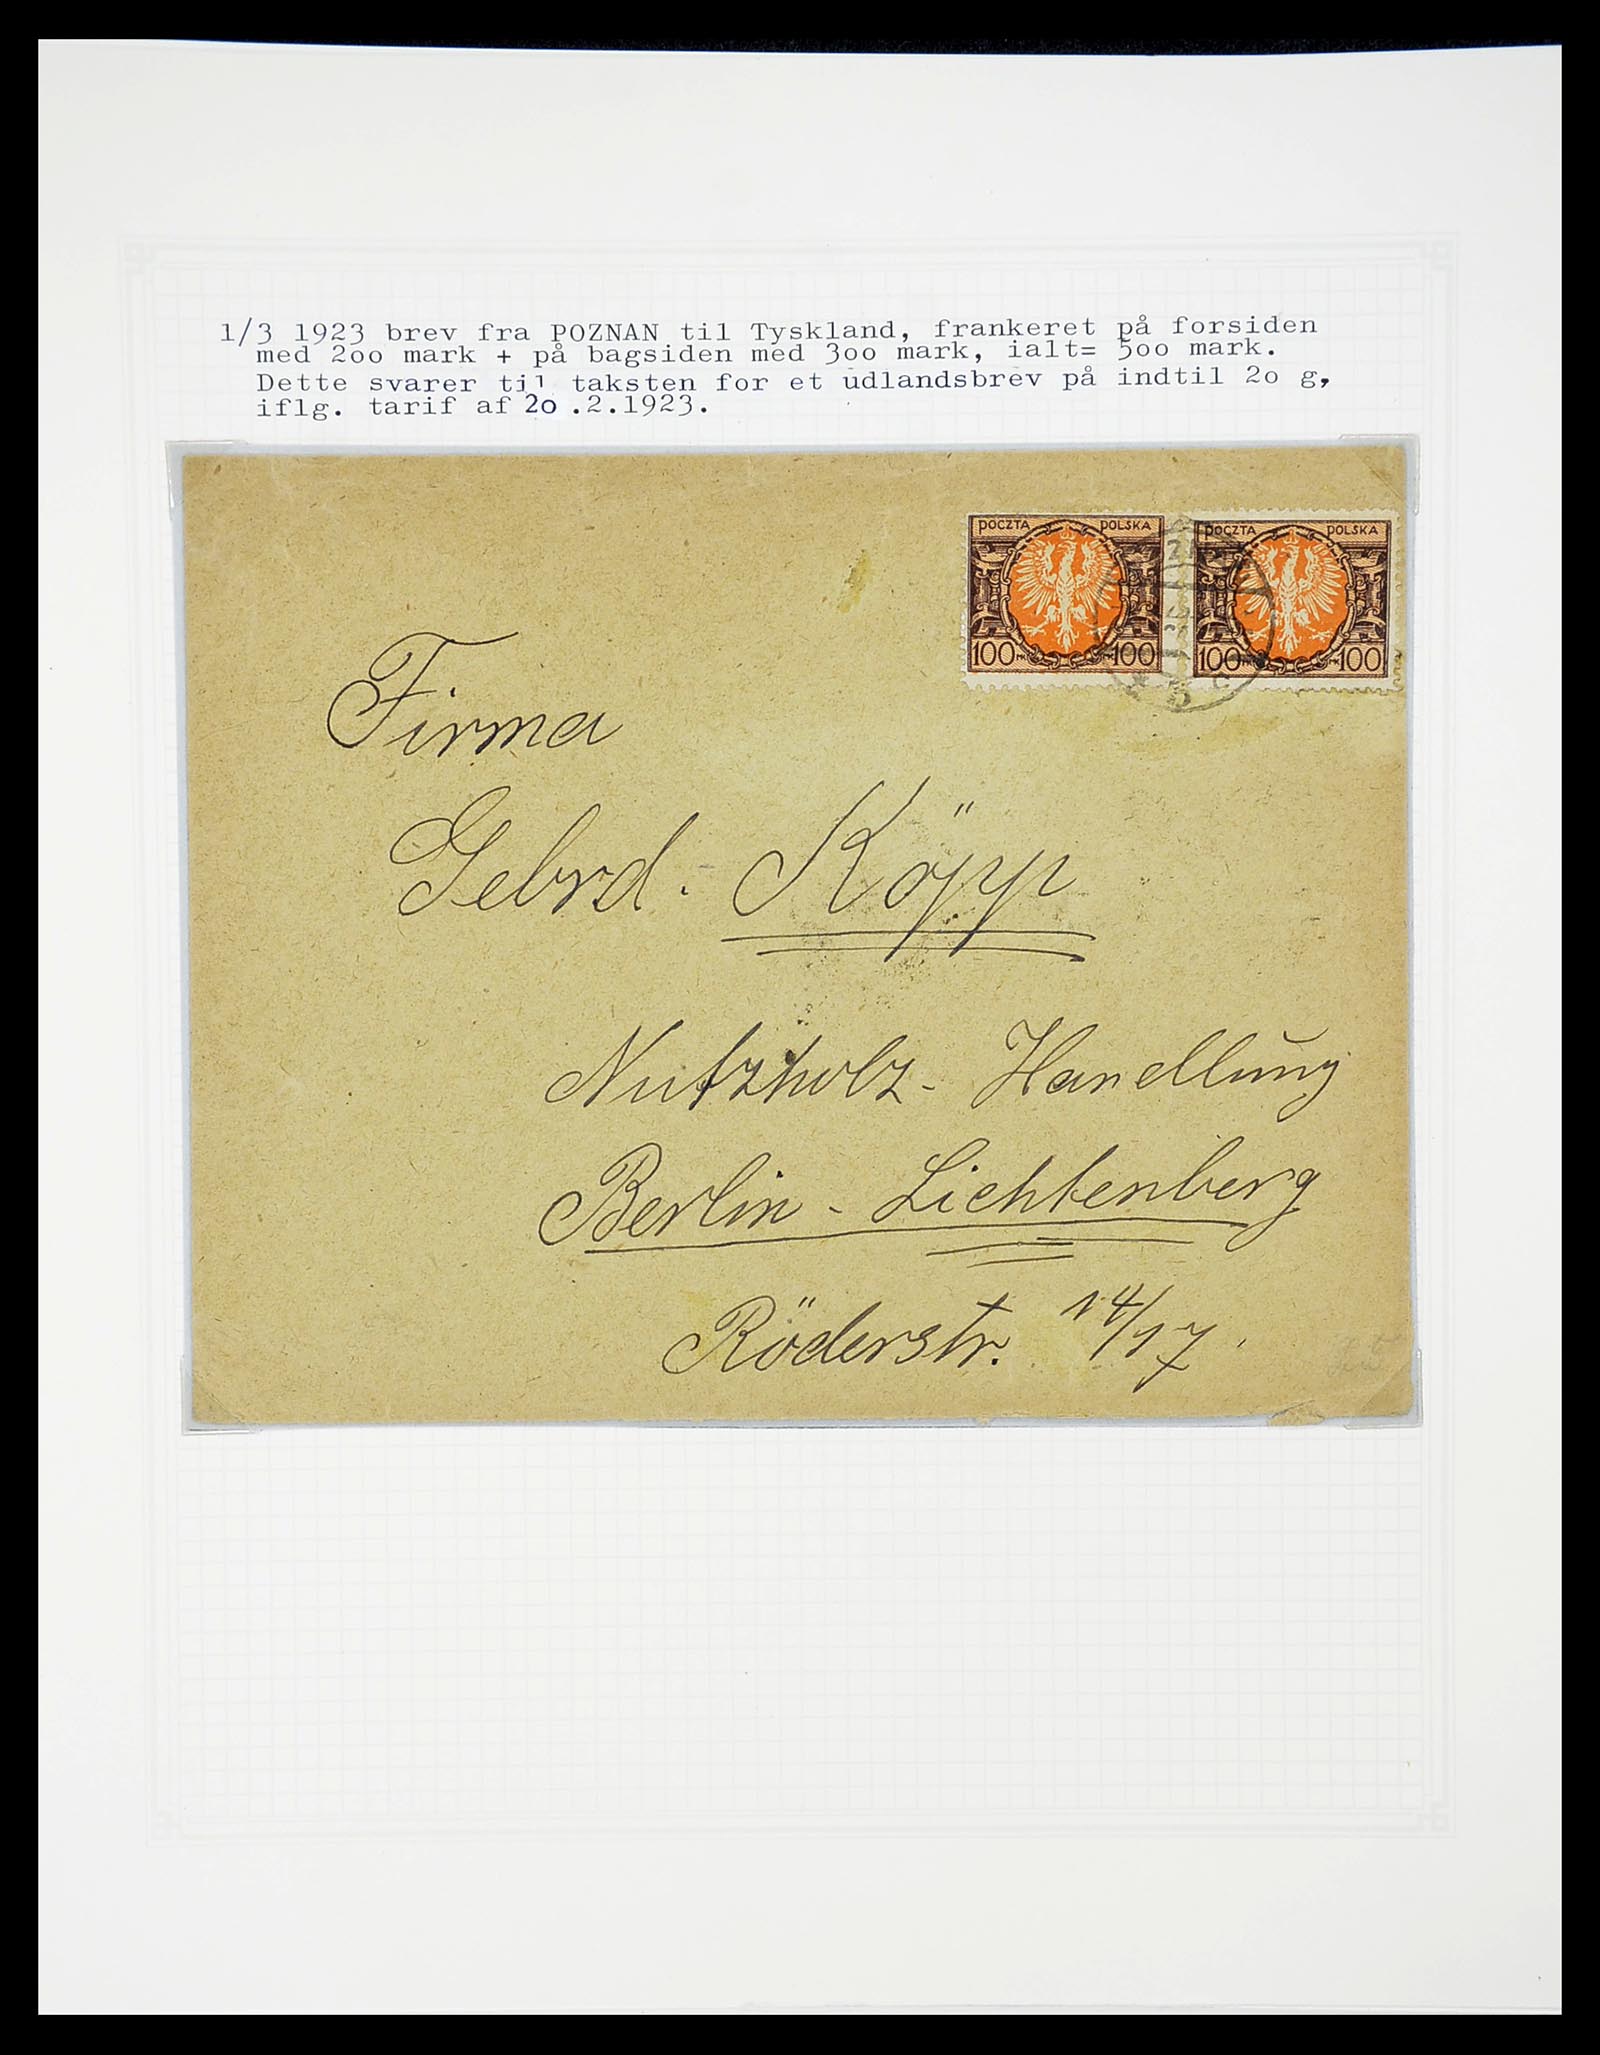 1/3 1923 brev fra POZNAN til Tyskland, frankeret på forsiden
med 2oo mark + på bagsiden med 3oo mark, ialt= 5oo mark.
Dette svarer til taksten for et udlandsbrev på indtil 2o g,
iflg. tarif af 2o .2.1923.
POCZTA POLSKA
100 MK MK 100
POCZTA POLSKA
100 MK MK 100
* 5 c
Firma
Gebrd. Köpp
Nutzholz - Handlung
Berlin - Lichtenberg
Röderstr. 14/17.